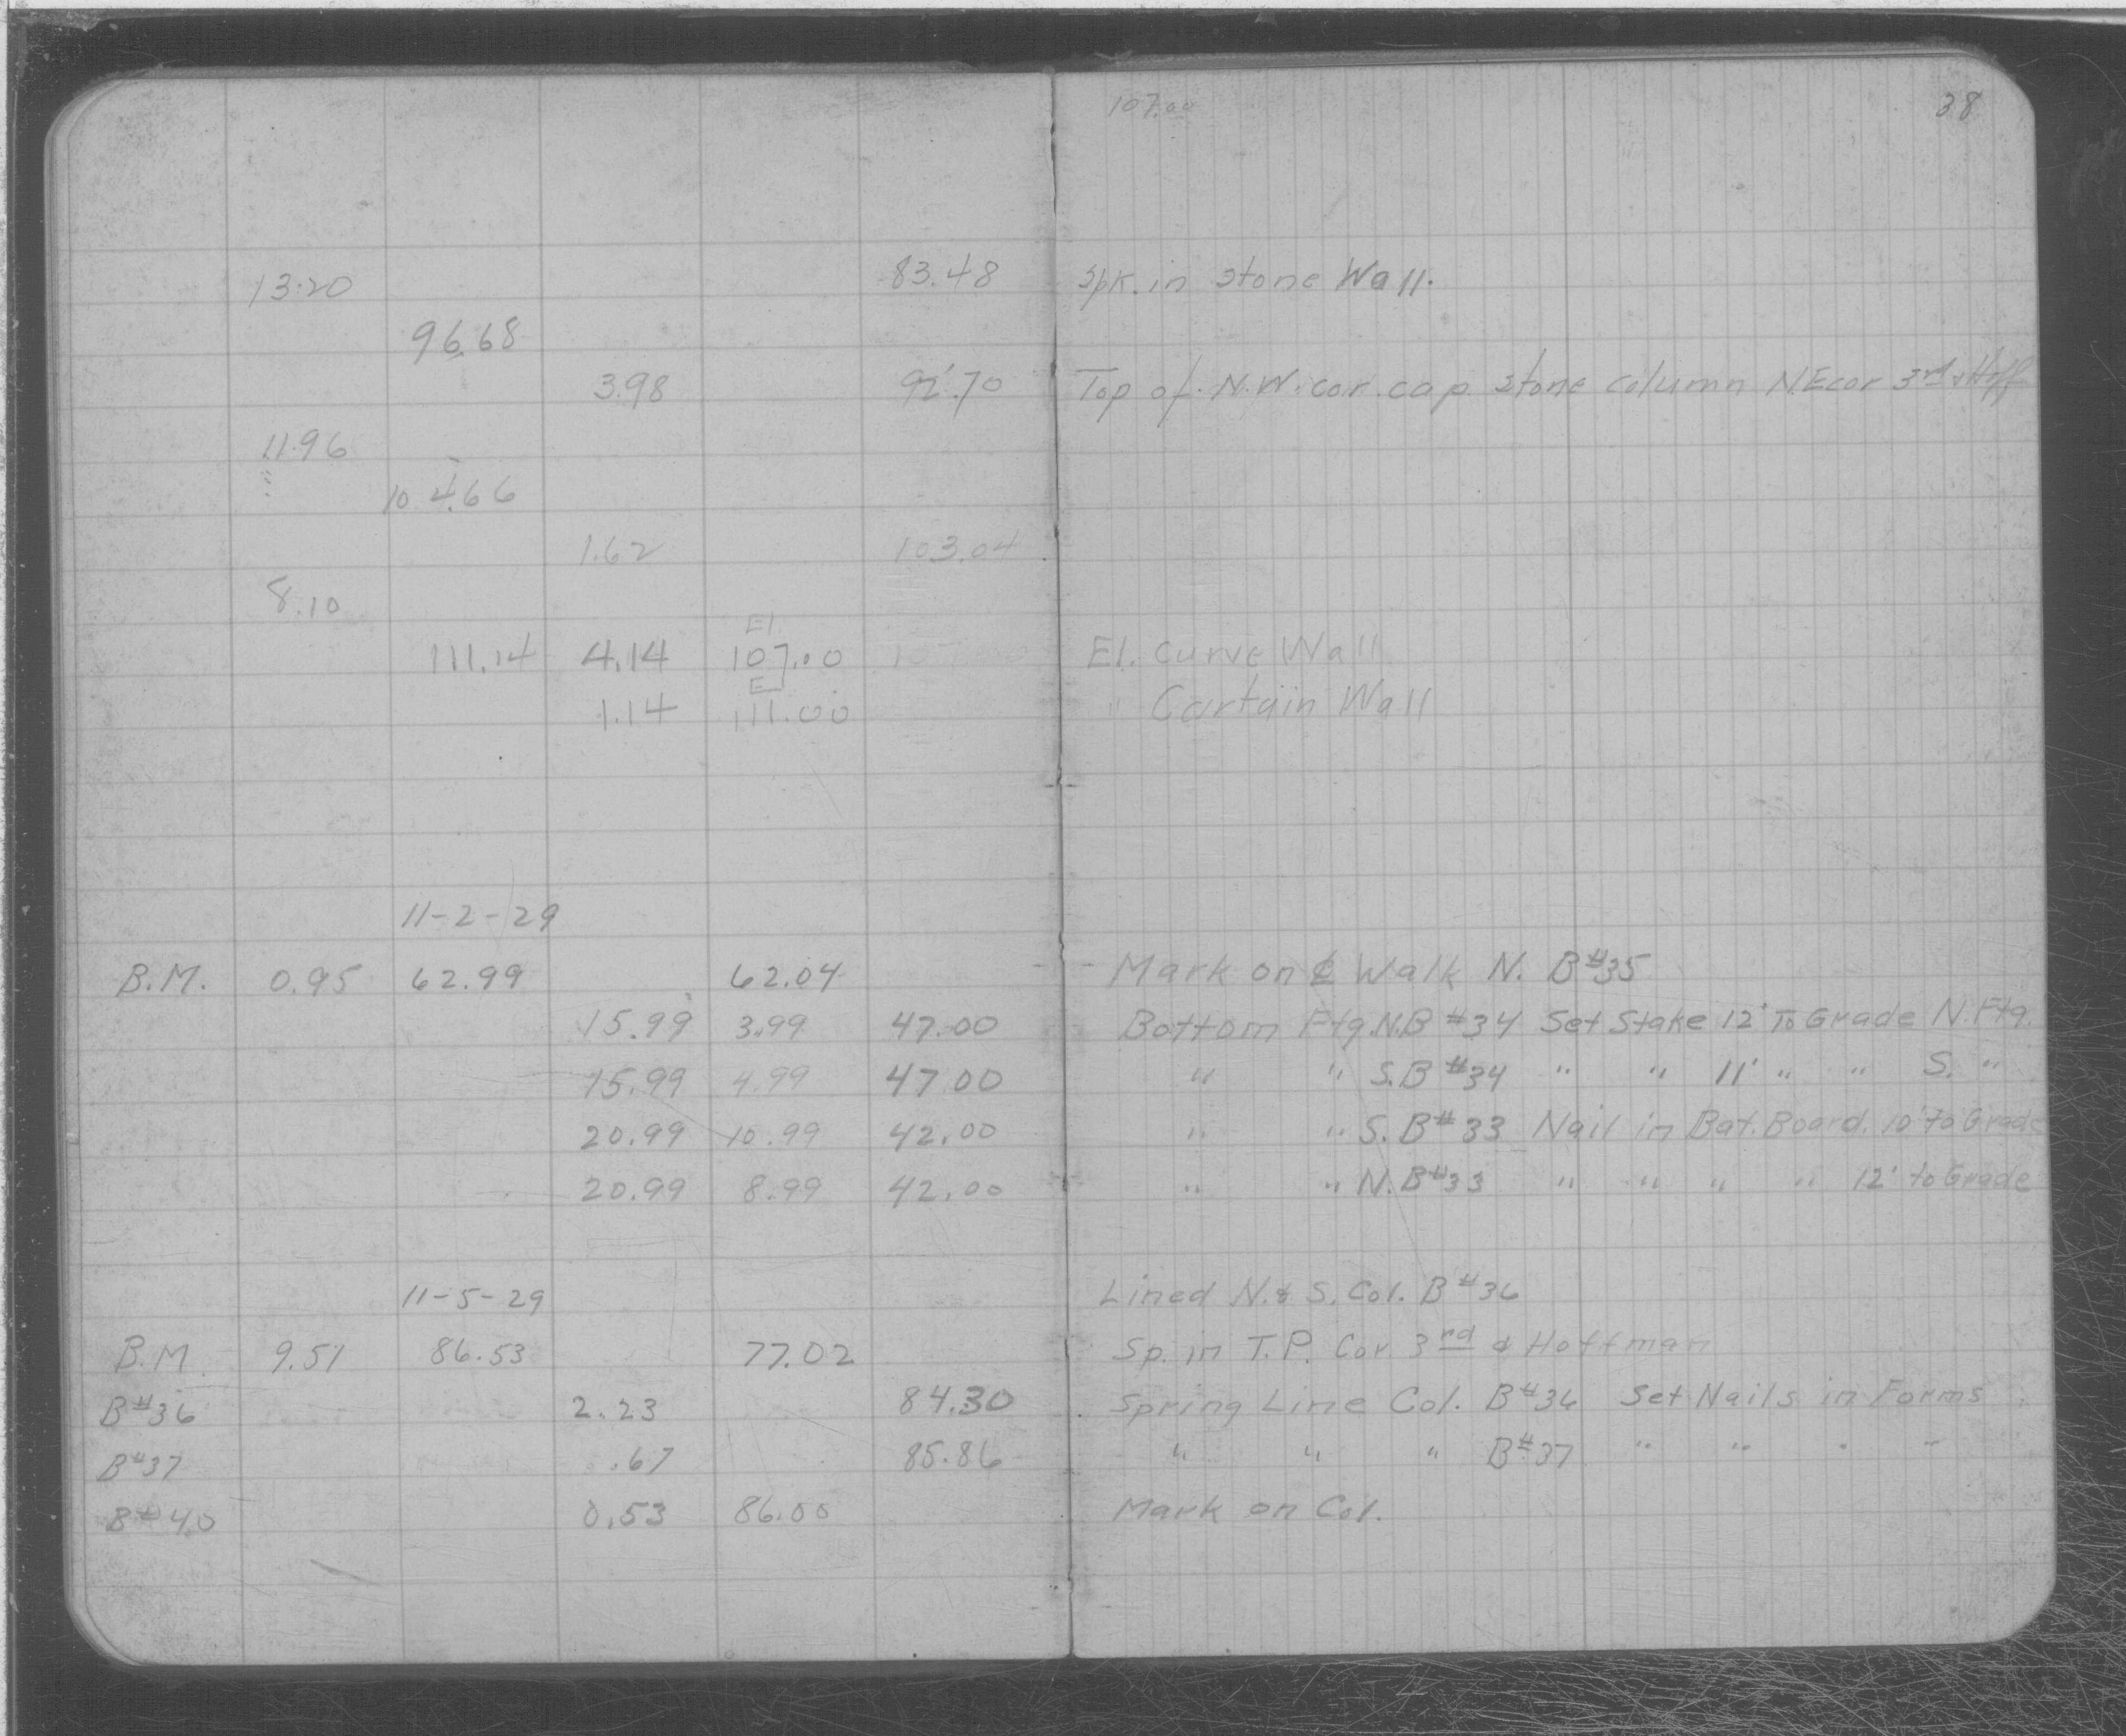 107.00 38
13.20 83.48 Spk. in stone Wall.
96.68
3.98 92.70 Top of N.W. cor. cap stone column N.E cor 3rd & Hoff
11.96
104.66
1.62 103.04
8.10
El.
111.14 4.14 107.00 El. Curve Wall
El
1.14 111.00 " Curtain Wall
11-2-29
B.M. 0.95 62.99 62.04 Mark on ℄ Walk N. B#35
15.99 3.99 47.00 Bottom Ftg. N.B #34 Set Stake 12' To Grade N. Ftg.
15.99 4.99 47.00 " " S.B #34 " " 11' " " S. "
20.99 10.99 42.00 " " S. B#33 Nail in Bat. Board. 10' to Grade
20.99 8.99 42.00 " " N. B#33 " " " " 12' to Grade
11-5-29 Lined N. & S. Col. B#36
B.M. 9.51 86.53 77.02 Sp. in T.P. Cor. 3rd & Hoffman
B#36 2.23 84.30 Spring Line Col. B#36 Set Nails in Forms
B#37 .67 85.86 " " " B#37 " " " "
B#40 0.53 86.00 Mark on Col.